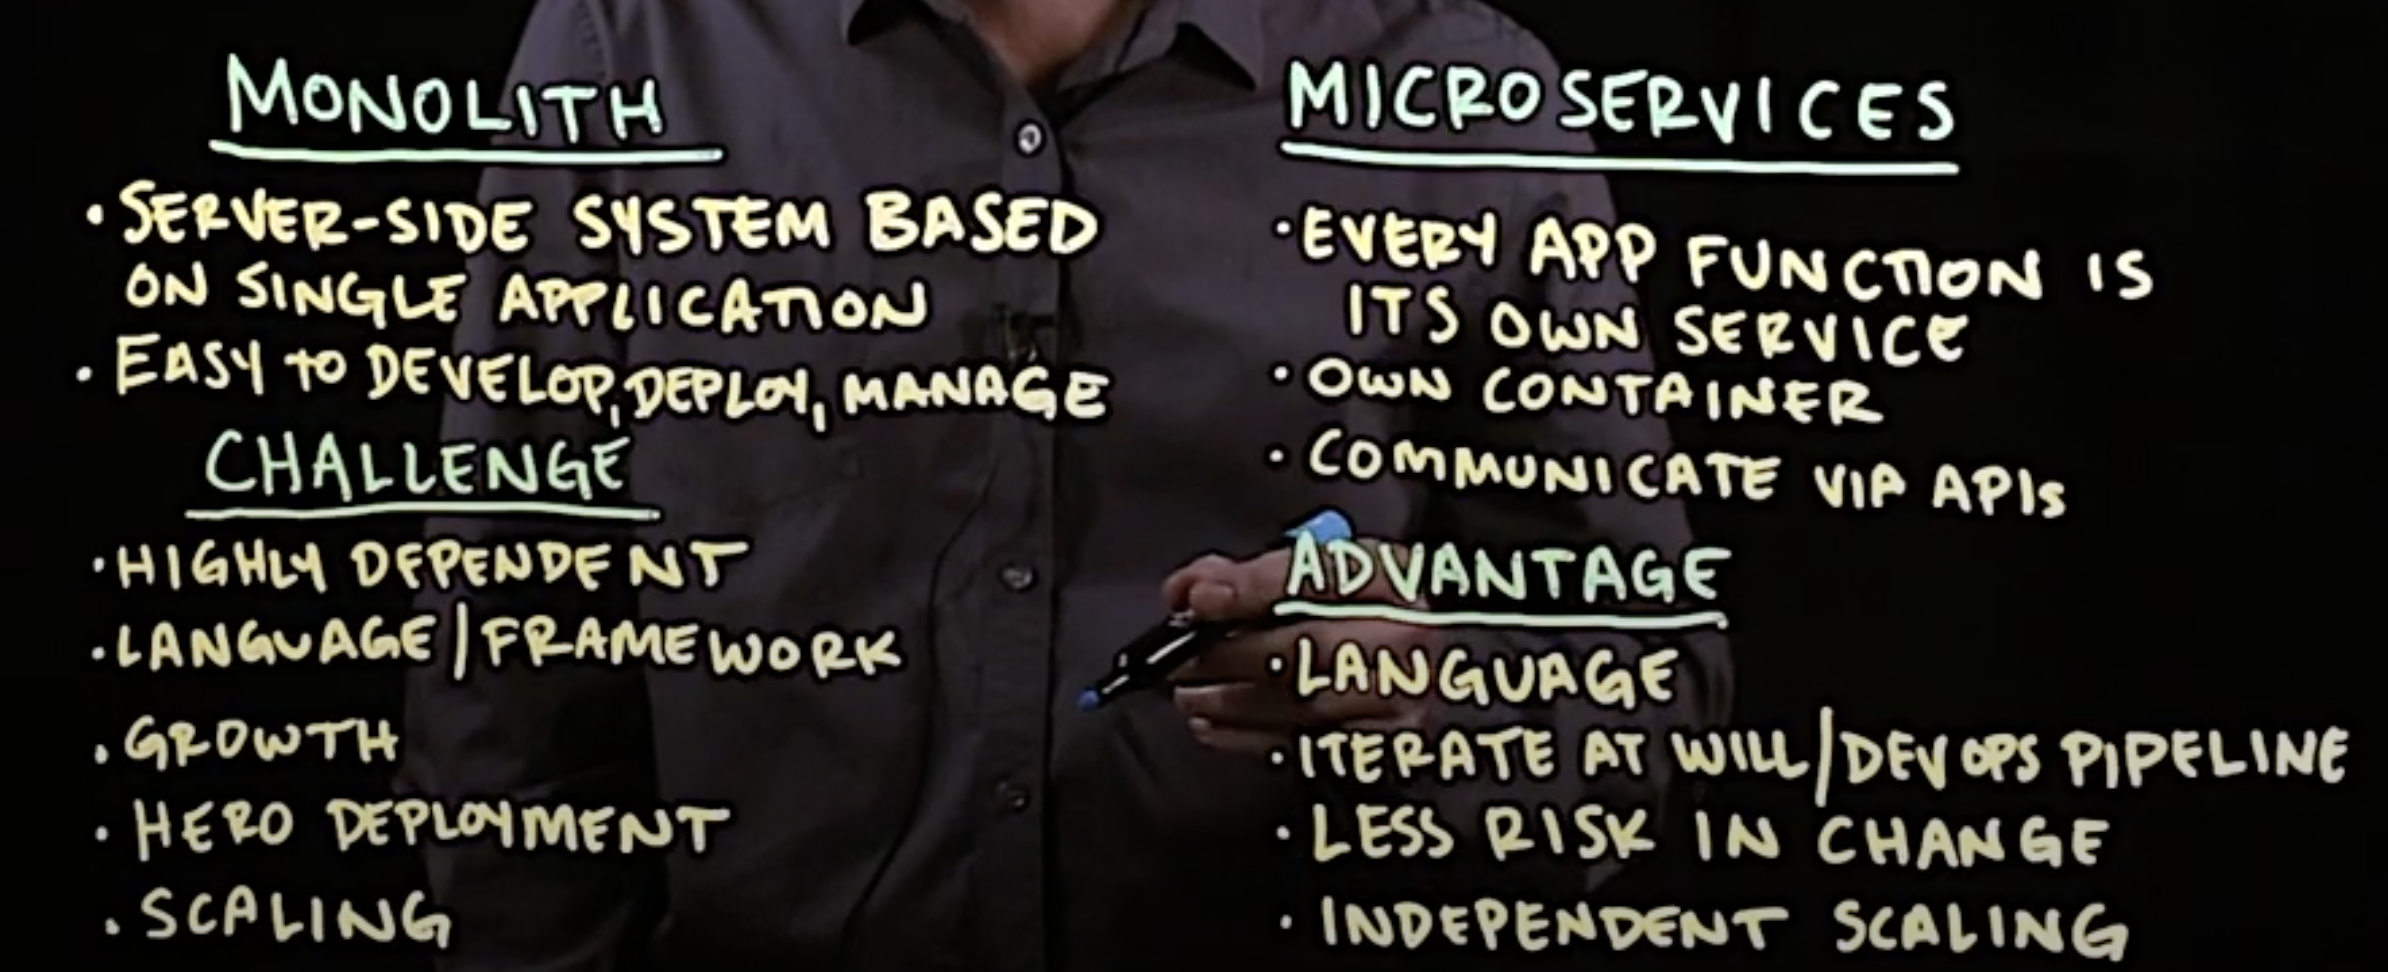 MONOLITH
• SERVER-SIDE SYSTEM BASED
ON SINGLE APPLICATION
• EASY TO DEVELOP, DEPLOY, MANAGE
CHALLENGE
• HIGHLY DEPENDENT
• LANGUAGE/FRAMEWORK
• GROWTH
• HERO DEPLOYMENT
• SCALING
MICROSERVICES
• EVERY APP FUNCTION IS
ITS OWN SERVICE
• OWN CONTAINER
• COMMUNICATE VIA APIs
ADVANTAGE
• LANGUAGE
• ITERATE AT WILL/DEVOPS PIPELINE
• LESS RISK IN CHANGE
• INDEPENDENT SCALING